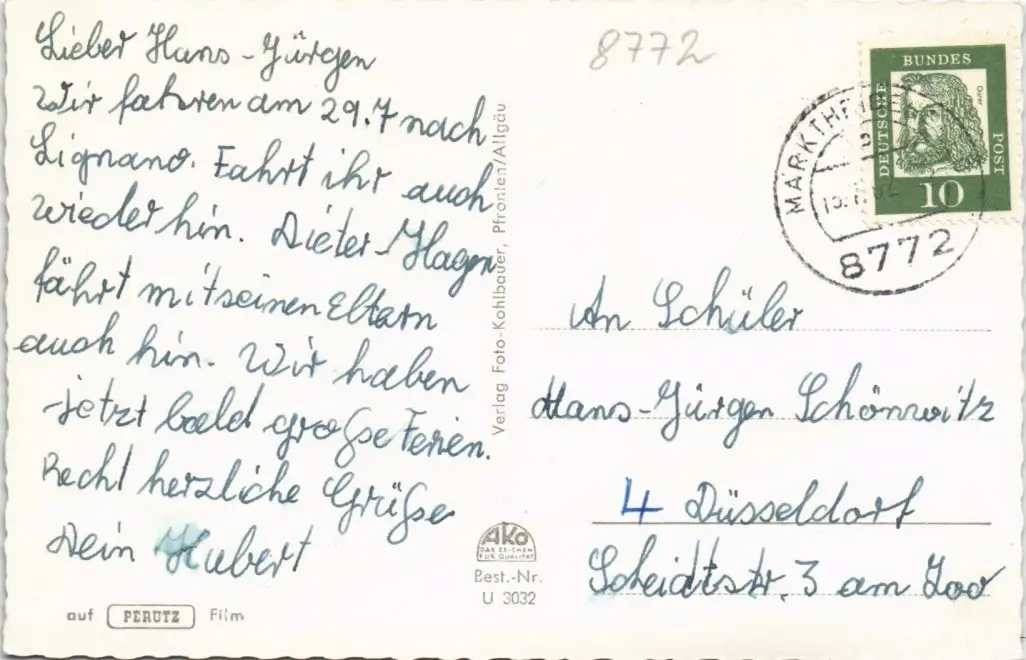 Lieber Hans-Jürgen
Wir fahren am 29.7 nach
Lignano. Fahrt ihr auch
wieder hin. Dieter-Hagen
fährt mit seinen Eltern
auch hin. Wir haben
jetzt bald große Ferien.
Recht herzliche Grüße
Dein Hubert
auf PERUTZ Film
Verlag Foto-Kohlbauer, Pfronten/Allgäu
AKO
DAS ZEICHEN
FÜR QUALITÄT
Best.-Nr.
U 3032
8772
DEUTSCHE
BUNDES
POST
Dürer
10
MARKTHEID
8772
An Schüler
Hans-Jürgen Schönwitz
4 Düsseldorf
Scheidtstr. 3 am Zoo